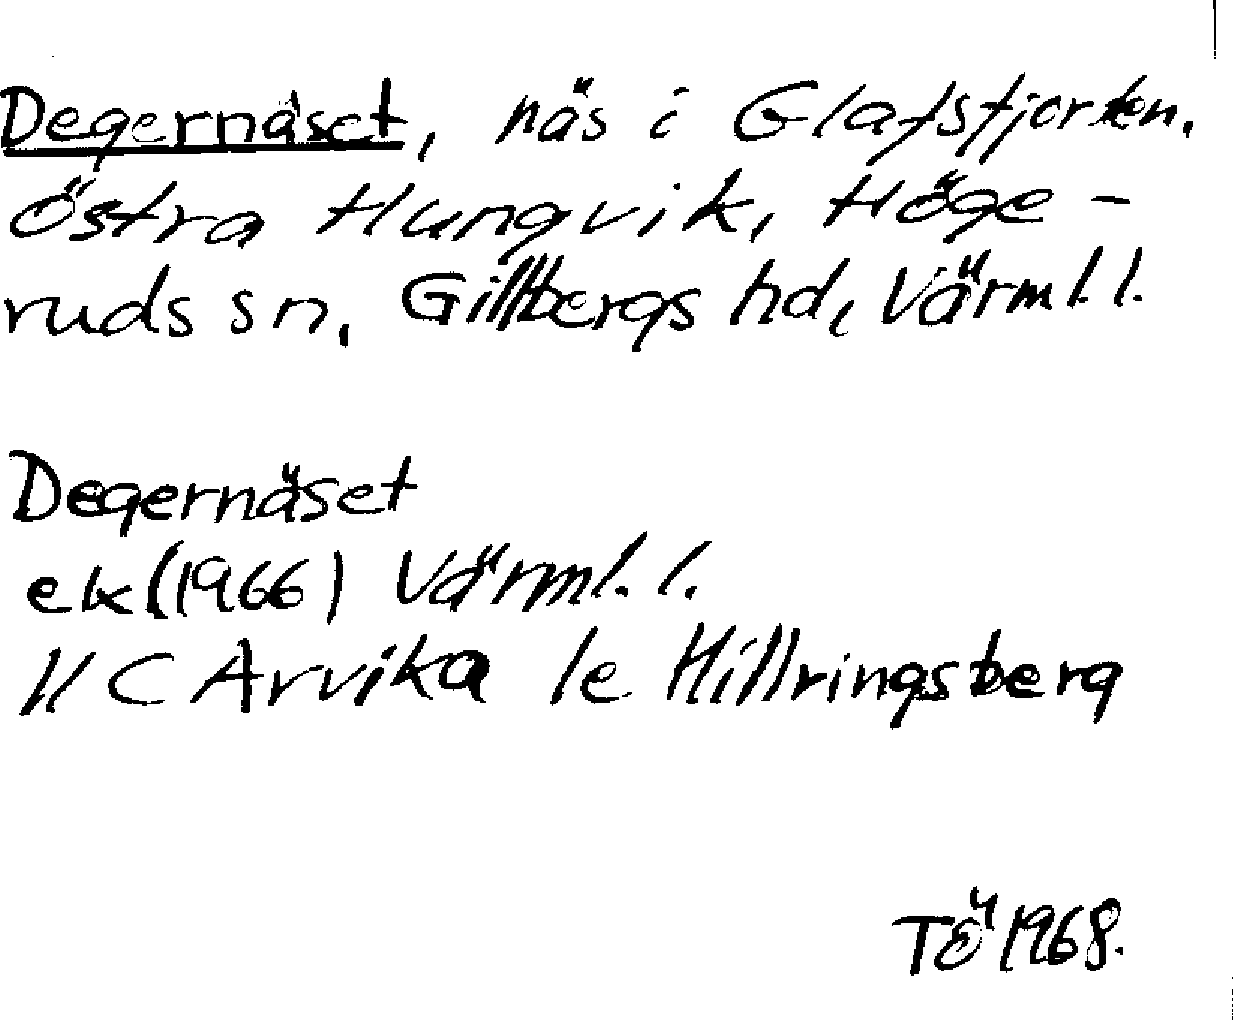 Degernäset, näs i Glafsfjorden.
Östra Hungvik, Höge-
ruds sn, Gillbergs hd, Värml. l.
Degernäset
ek (1966) Värml. l.
11 C Arvika le Hillringsberg
TÖ 1968.